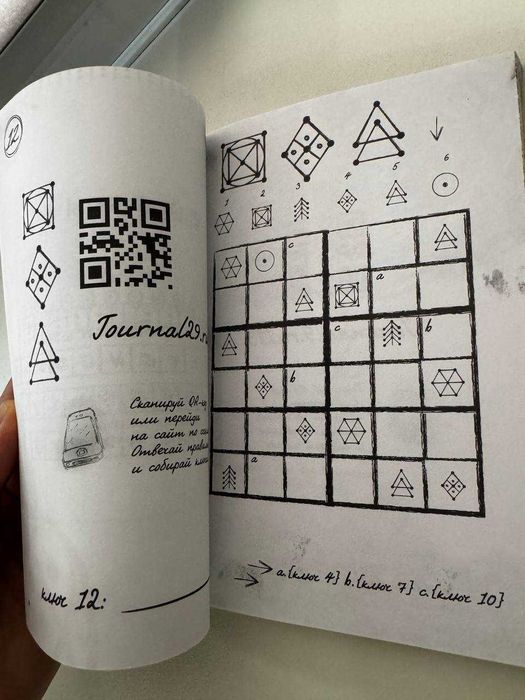 12
Journal29.r
Сканируй QR-ко
или перейди
на сайт по
Отвечай
и собирай
ключ 12:
1 2 3 4 5 6
c
a
c b
b
a
a.{ключ 4} b.{ключ 7} c.{ключ 10}